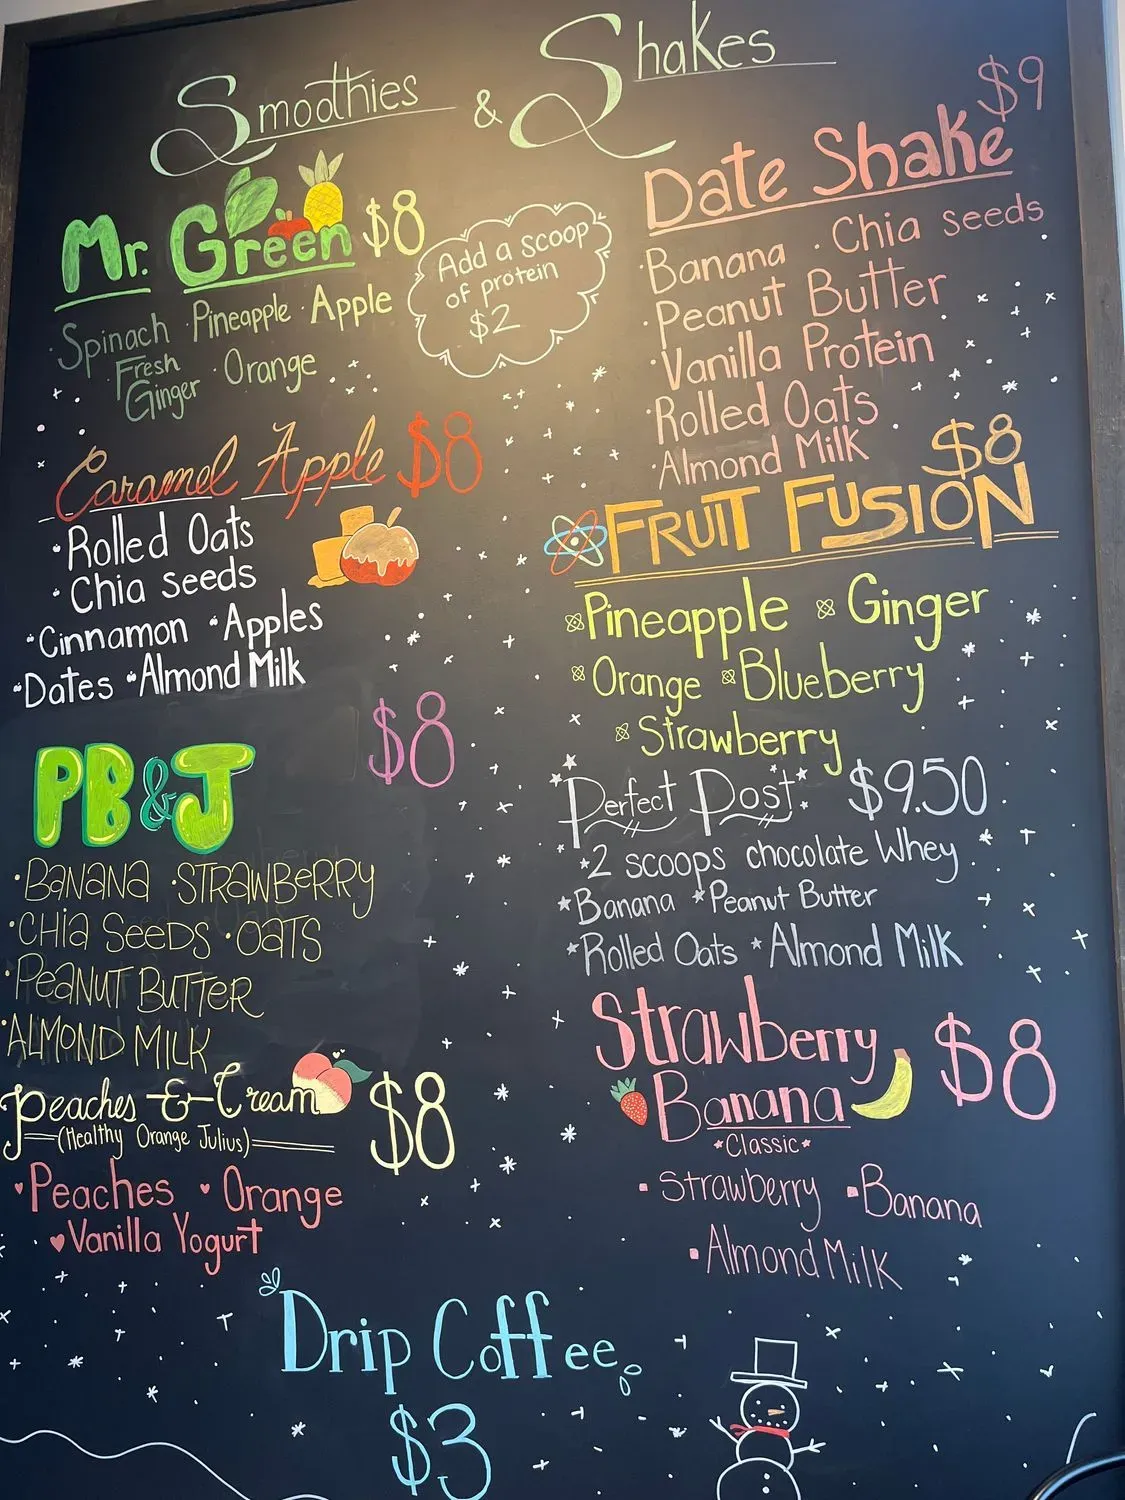 Smoothies & Shakes
Mr. Green $8
· Spinach · Pineapple · Apple
· Fresh Ginger · Orange
Add a scoop
of protein
$2
Caramel Apple $8
· Rolled Oats
· Chia seeds
· Cinnamon · Apples
· Dates · Almond Milk
PB&J $8
· BANANA · STRAWBERRY
· CHIA SEEDS · OATS
· PEANUT BUTTER
· ALMOND MILK
Peaches & Cream $8
(Healthy Orange Julius)
♥ Peaches ♥ Orange
♥ Vanilla Yogurt
$9
Date Shake
· Banana · Chia seeds
· Peanut Butter
· Vanilla Protein
· Rolled Oats
· Almond Milk
$8
FRUIT FUSION
Pineapple Ginger
Orange Blueberry
Strawberry
Perfect Post $9.50
* 2 scoops chocolate Whey
* Banana * Peanut Butter
* Rolled Oats * Almond Milk
Strawberry
Banana $8
* Classic *
▪ Strawberry ▪ Banana
▪ Almond Milk
Drip Coffee
$3